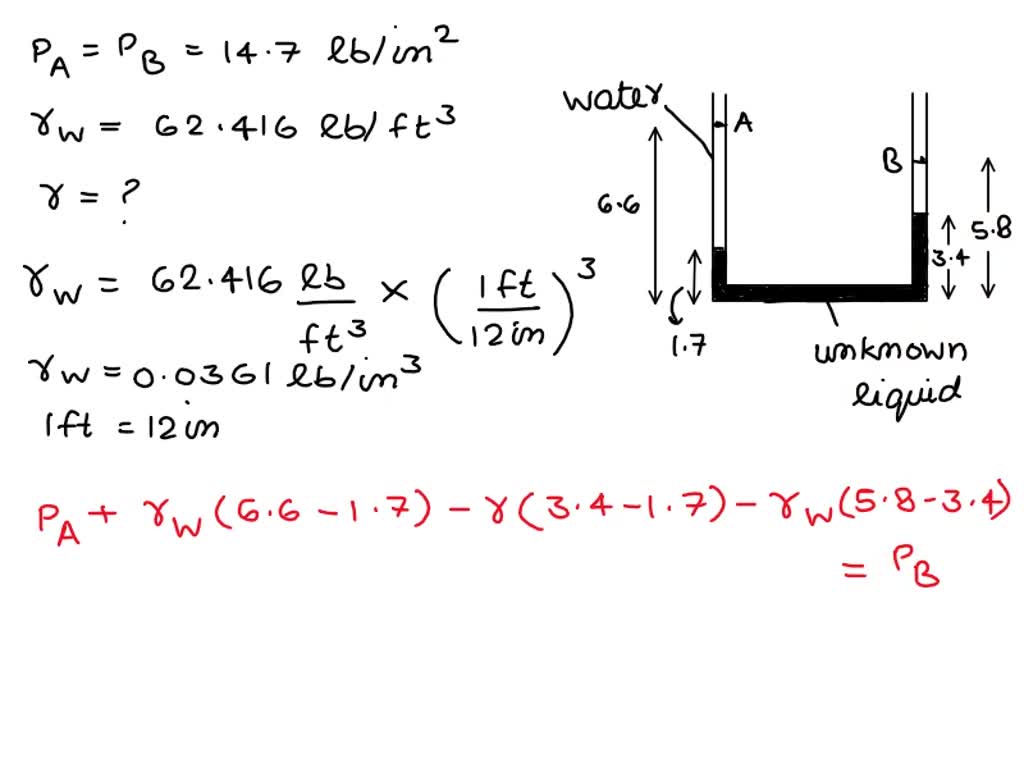 P_A = P_B = 14.7 lb/in²
γ_w = 62.416 lb/ft³
γ = ?
γ_w = 62.416 lb/ft³ × (1ft/12in)³
γ_w = 0.0361 lb/in³
1ft = 12in
water
A
B
6.6
5.8
3.4
1.7
unknown
liquid
P_A + γ_w (6.6 - 1.7) - γ (3.4 - 1.7) - γ_w (5.8 - 3.4)
= P_B